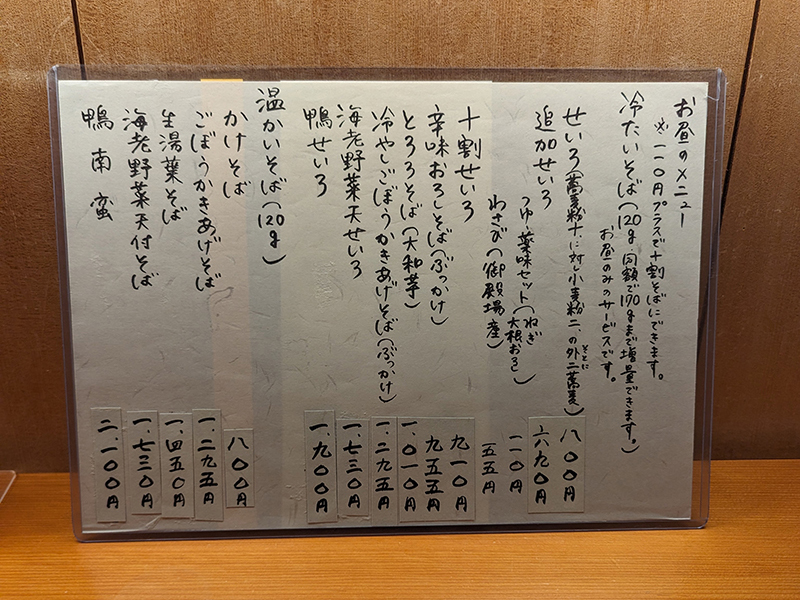 お昼のメニュー
※一一〇円プラスで十割そばにできます。
冷たいそば(120g・同額で170gまで増量できます。)
お昼のみのサービスです。
せいろ(蕎麦粉十、に対し小麦粉二、の外二蕎麦) 八〇〇円
そとに
追加せいろ 六九〇円
つゆ・薬味セット(ねぎ 大根おろし) 一一〇円
わさび(御殿場産) 五五円
十割せいろ 九一〇円
辛味おろしそば(ぶっかけ) 九五五円
とろろそば(大和芋) 一、〇一〇円
冷やしごぼうかきあげそば(ぶっかけ) 一、二九五円
海老野菜天せいろ 一、七三〇円
鴨せいろ 一、九〇〇円
温かいそば(120g)
かけそば 八〇〇円
ごぼうかきあげそば 一、二九五円
生湯葉そば 一、四五〇円
海老野菜天付そば 一、七三〇円
鴨南蛮 二、一〇〇円